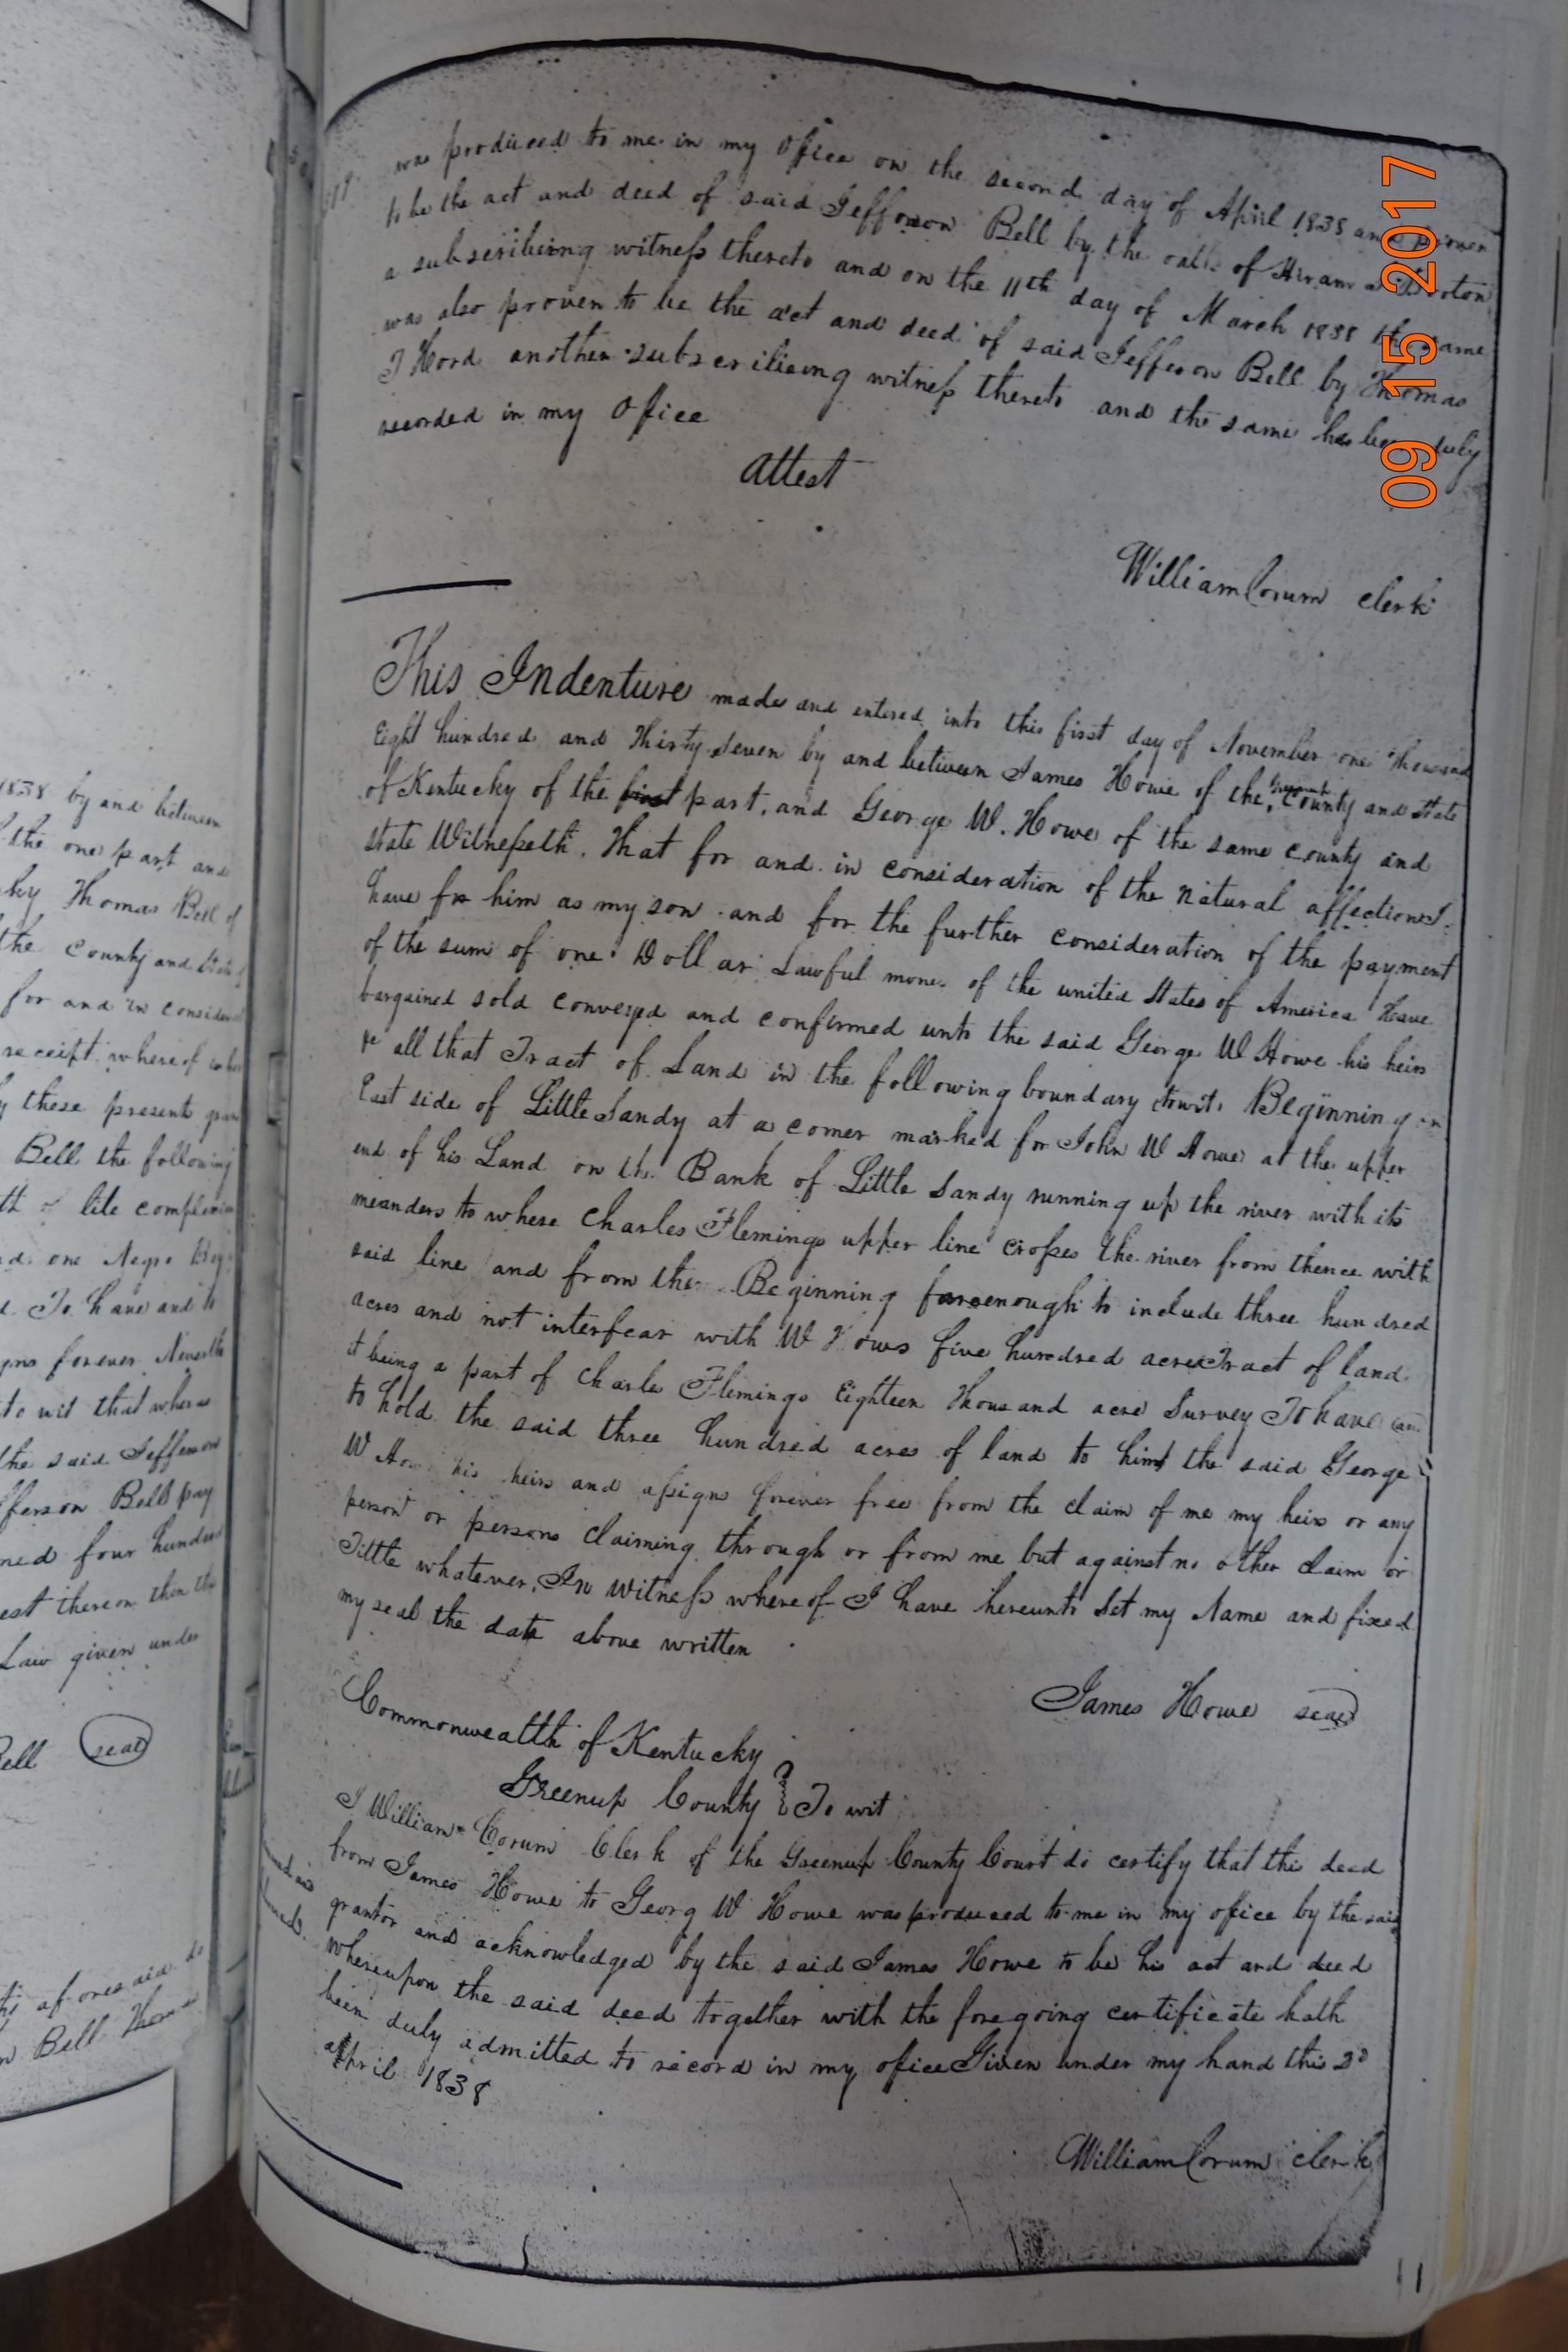 1838 by and between
the one part and
ky Thomas Bell of
the County and
for and in
receipt whereof
these present
Bell the following
one Negro Boy
To have and to
forever
to wit that whereas
the said Jefferson
Jefferson Bell pay
four hundred
thereon then the
Law given under
Bell seal
aforesaid do
Bell Thomas
was produced to me in my office on the second day of April 1838 and proven
to be the act and deed of said Jefferson Bell by the oath of Hiram
a subscribeing witness thereto and on the 11th day of March 1838 the same
was also proven to be the act and deed of said Jefferson Bell by Thomas
T Hord another subscribeing witness thereto and the same has been duly
recorded in my office
Attest
William Corum clerk
This Indenture made and entered into this first day of November one thousand
Eight hundred and Thirty Seven by and between James Howe of the Greenup County and State
of Kentucky of the first part, and George W. Howe of the same county and
State Witnesseth. That for and in consideration of the natural affection I
have for him as my son and for the further consideration of the payment
of the sum of one Dollar Lawful money of the united States of America Have
bargained sold conveyed and confirmed unto the said George W Howe his heirs
&c all that Tract of Land in the following boundary towit, Beginning on
East side of Little Sandy at a corner marked for John W Howe at the upper
end of his Land on the Bank of Little Sandy running up the river with its
meanders to where Charles Flemings upper line crosses the river from thence with
said line and from the Beginning far enough to include three hundred
acres and not interfear with W Hows five hundred acre Tract of land
it being a part of Charles Flemings Eighteen Thousand acre Survey To have and
to hold the said three hundred acres of land to him the said George
W Howe his heirs and assigns forever free from the claim of me my heirs or any
person or persons claiming through or from me but against no other claim or
Tittle whatever, In witness whereof I have hereunto Set my Name and fixed
my seal the date above written
James Howe seal
Commonwealth of Kentucky
Greenup County } To wit
I William Corum Clerk of the Greenup County Court do certify that this deed
from James Howe to Georg W Howe was produced to me in my office by the said
grantor and acknowledged by the said James Howe to be his act and deed
whereupon the said deed together with the foregoing certificate hath
been duly admitted to record in my office Given under my hand this 2d
april 1838
William Corum clerk
11
09 15 2017